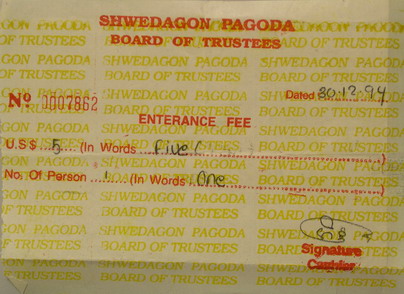 SHWEDAGON PAGODA
BOARD OF TRUSTEES
Nº 0007862
Dated 30.12.94
ENTERANCE FEE
U.S $ 5 (In Words Five/ )
No. Of Person 1 (In Words One )
Signature
Cashier